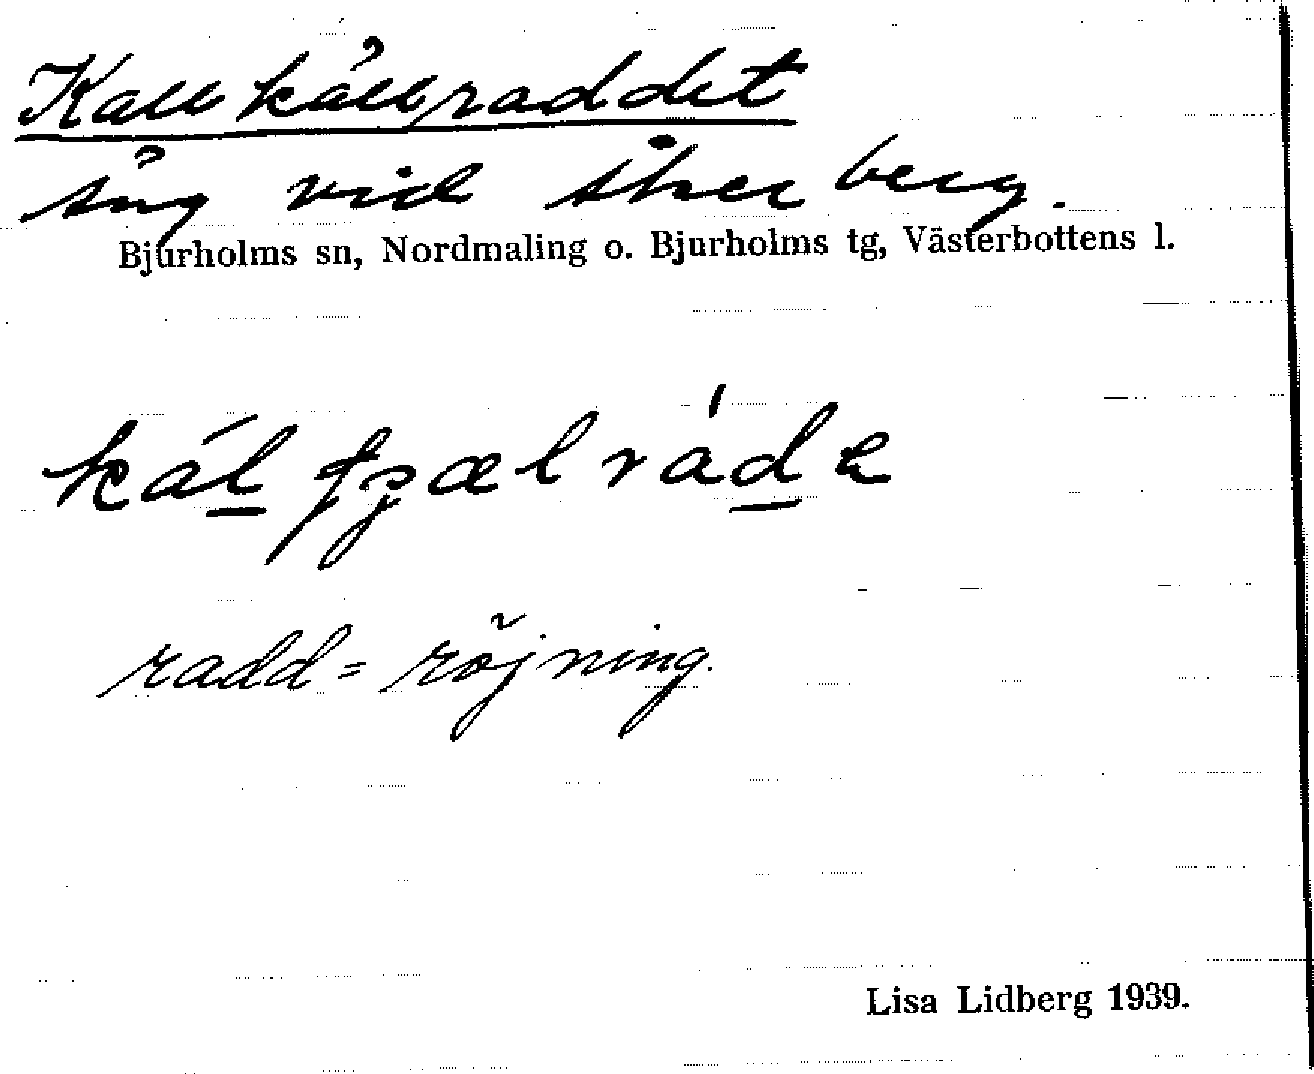 Kallkällraddet
äng vid Åkerberg.
Bjurholms sn, Nordmaling o. Bjurholms tg, Västerbottens l.
radd = röjning.
Lisa Lidberg 1939.